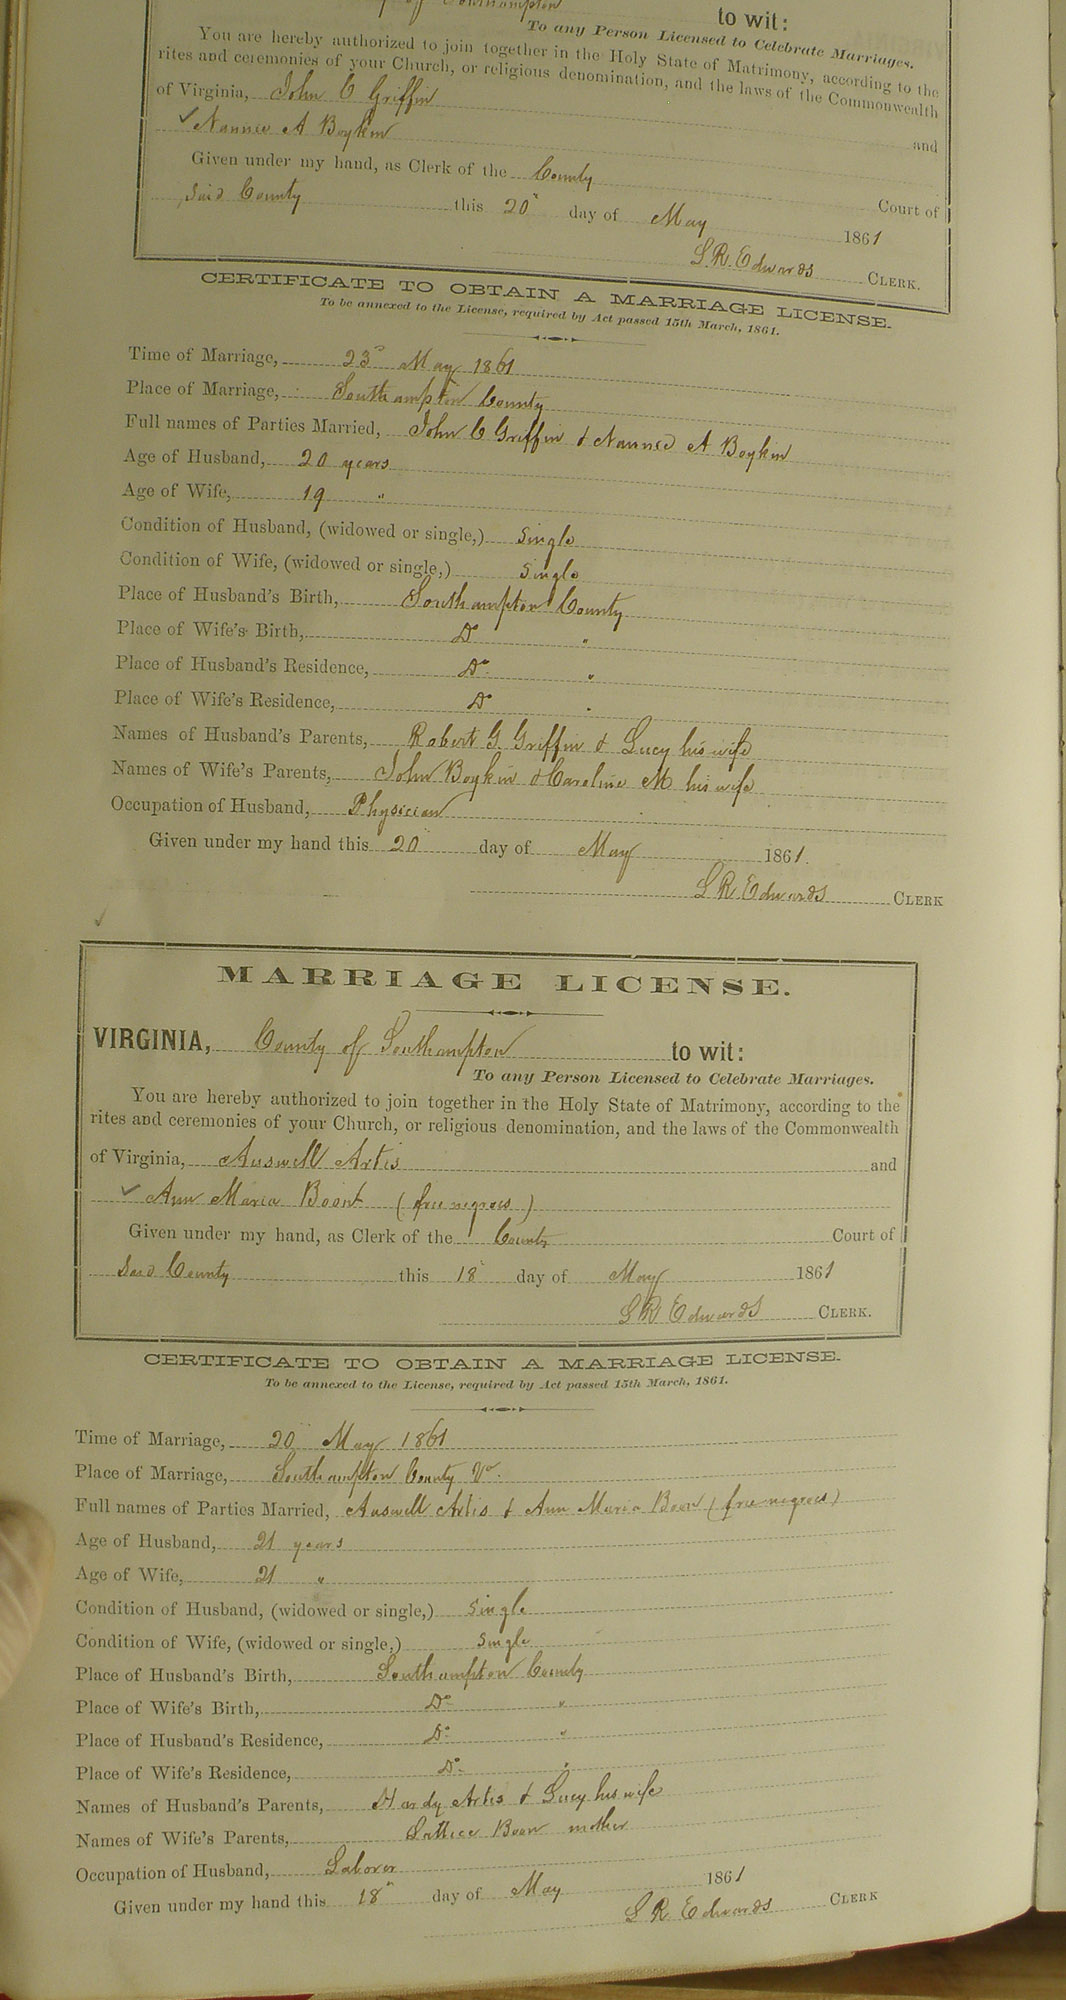 of Southampton to wit:
To any Person Licensed to Celebrate Marriages.
You are hereby authorized to join together in the Holy State of Matrimony, according to the
rites and ceremonies of your Church, or religious denomination, and the laws of the Commonwealth
of Virginia, John C Griffin and
✓ Nannie A Boykin
Given under my hand, as Clerk of the County Court of
said County this 20" day of May 1861
L R Edwards CLERK.
CERTIFICATE TO OBTAIN A MARRIAGE LICENSE.
To be annexed to the License, required by Act passed 15th March, 1861.
Time of Marriage, 23" May 1861
Place of Marriage, Southampton County
Full names of Parties Married, John C Griffin & Nannie A Boykin
Age of Husband, 20 years
Age of Wife, 19 "
Condition of Husband, (widowed or single,) single
Condition of Wife, (widowed or single,) single
Place of Husband's Birth, Southampton County
Place of Wife's Birth, Do "
Place of Husband's Residence, Do "
Place of Wife's Residence, Do "
Names of Husband's Parents, Robert G Griffin & Lucy his wife
Names of Wife's Parents, John Boykin & Caroline M his wife
Occupation of Husband, Physician
Given under my hand this 20 day of May 1861.
L R Edwards CLERK
✓
MARRIAGE LICENSE.
VIRGINIA, County of Southampton to wit:
To any Person Licensed to Celebrate Marriages.
You are hereby authorized to join together in the Holy State of Matrimony, according to the
rites and ceremonies of your Church, or religious denomination, and the laws of the Commonwealth
of Virginia, Auswell Artis and
✓ Ann Maria Boont (free negroes)
Given under my hand, as Clerk of the County Court of
said County this 18" day of May 1861
L R Edwards CLERK.
CERTIFICATE TO OBTAIN A MARRIAGE LICENSE.
To be annexed to the License, required by Act passed 15th March, 1861.
Time of Marriage, 20" May 1861
Place of Marriage, Southampton County Va.
Full names of Parties Married, Auswell Artis & Ann Maria Boon (free negroes)
Age of Husband, 21 years
Age of Wife, 21 "
Condition of Husband, (widowed or single,) single
Condition of Wife, (widowed or single,) single
Place of Husband's Birth, Southampton County
Place of Wife's Birth, Do "
Place of Husband's Residence, Do "
Place of Wife's Residence, Do "
Names of Husband's Parents, Hardy Artis & Lucy his wife
Names of Wife's Parents, Lettice Boon mother
Occupation of Husband, Laborer
Given under my hand this 18" day of May 1861
L R Edwards CLERK